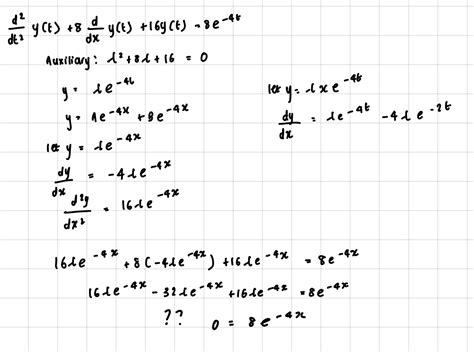 d²/dt² y(t) + 8 d/dx y(t) + 16y(t) = 8e^-4t
Auxiliary: λ² + 8λ + 16 = 0
y = λe^-4t
y = Ae^-4x + Be^-4x
let y = λe^-4x
dy/dx = -4λe^-4x
d²y/dx² = 16λe^-4x
let y = λxe^-4t
dy/dx = λe^-4t - 4λe^-2t
16λe^-4x + 8(-4λe^-4x) + 16λe^-4x = 8e^-4x
16λe^-4x - 32λe^-4x + 16λe^-4x = 8e^-4x
?? 0 = 8e^-4x